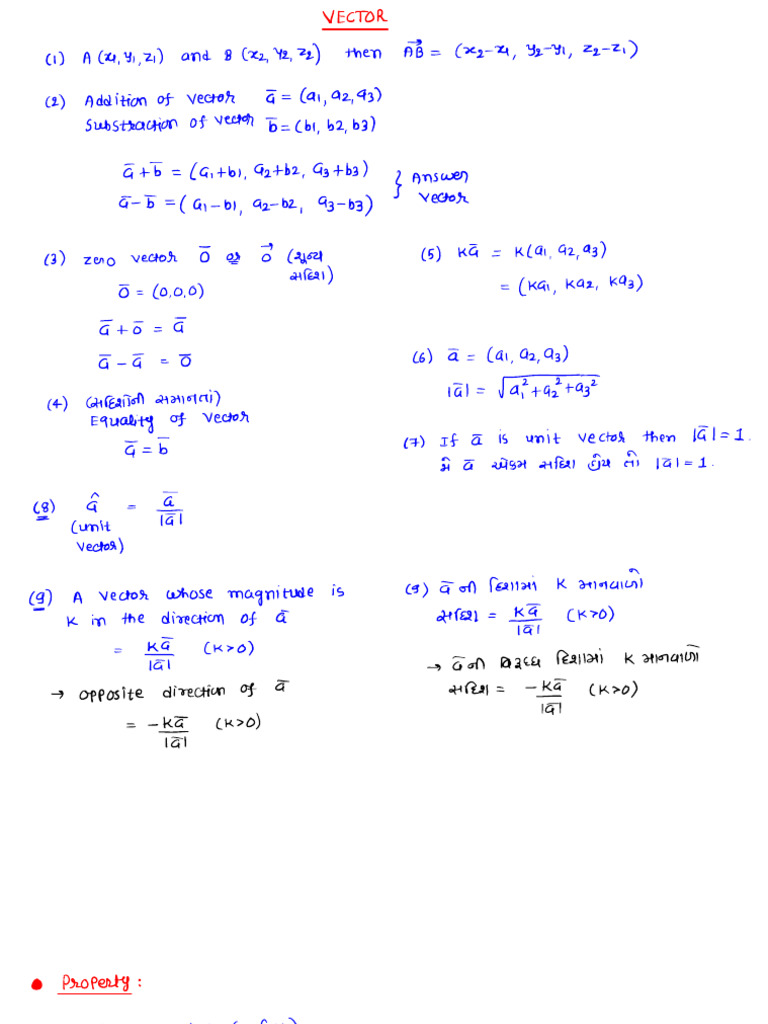 VECTOR
(1) A (x1, y1, z1) and B (x2, y2, z2) then A⃗B = (x2-x1, y2-y1, z2-z1)
(2) Addition of vector a̅ = (a1, a2, a3)
Substraction of vector b̅ = (b1, b2, b3)
a̅ + b̅ = (a1+b1, a2+b2, a3+b3)
a̅ - b̅ = (a1-b1, a2-b2, a3-b3)
} Answer
vector
(3) zero vector 0̅ or 0⃗ (શૂન્ય
સદિશ)
0̅ = (0,0,0)
a̅ + 0̅ = a̅
a̅ - a̅ = 0̅
(4) (સદિશોની સમાનતા)
Equality of vector
a̅ = b̅
(5) Ka̅ = K(a1, a2, a3)
= (Ka1, Ka2, Ka3)
(6) a̅ = (a1, a2, a3)
|a̅| = √(a1² + a2² + a3²)
(7) If a̅ is unit vector then |a̅| = 1.
જો a̅ એકમ સદિશ હોય તો |a̅| = 1.
(8) â = a̅/|a̅|
(unit
vector)
(9) A vector whose magnitude is
K in the direction of a̅
= Ka̅/|a̅| (K>0)
→ opposite direction of a̅
= -Ka̅/|a̅| (K>0)
(9) a̅ ની દિશામાં K માનવાળો
સદિશ = Ka̅/|a̅| (K>0)
→ a̅ની વિરૂધ્ધ દિશામાં K માનવાળો
સદિશ = -Ka̅/|a̅| (K>0)
• Property :